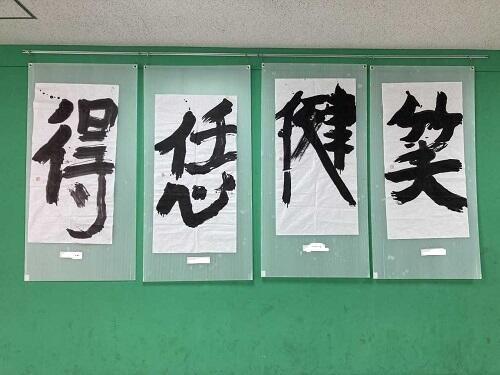 得
恁
健
笑